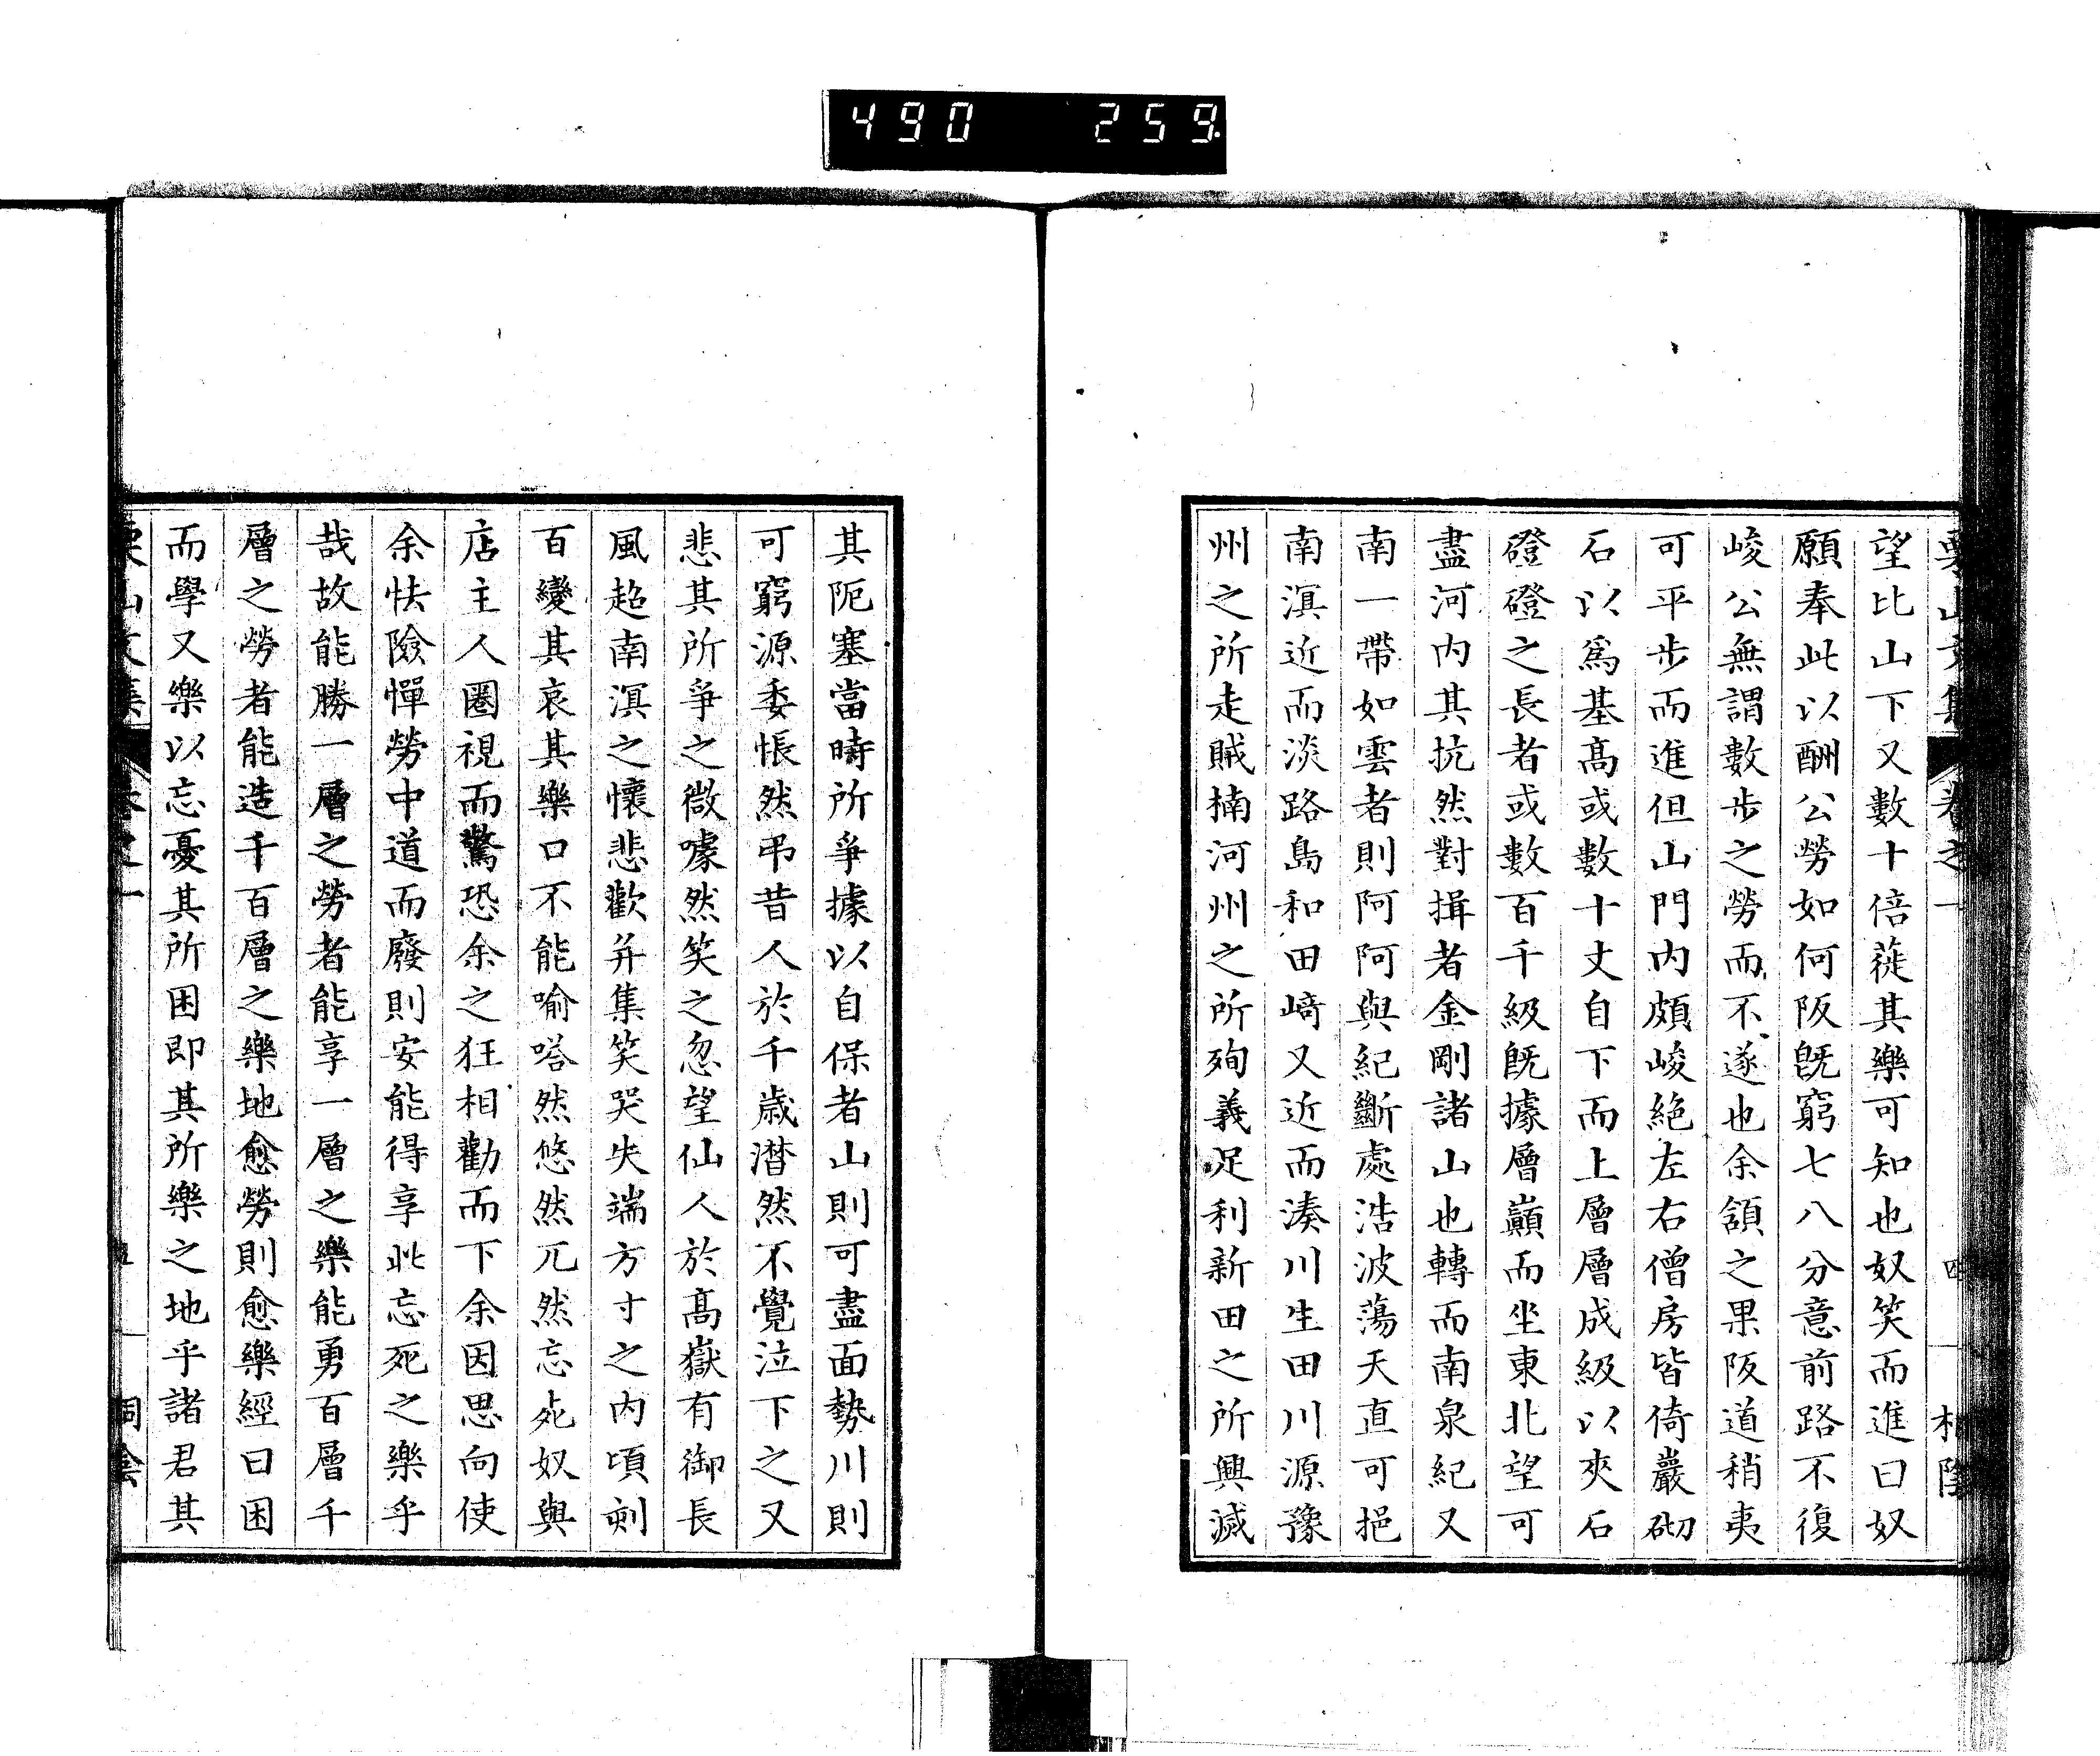 490 259.
栗山文集 卷之一 四
望比山下又數十倍蓰其樂可知也奴笑而進曰奴
願奉此以酬公勞如何阪既窮七八分意前路不復
峻公無謂數步之勞而不遂也余頷之果阪道稍夷
可平步而進但山門内頗峻絶左右僧房皆倚巖砌
石以爲基高或數十丈自下而上層層成級以夾石
磴磴之長者或數百千級既據層巔而坐東北望可
盡河内其抗然對揖者金剛諸山也轉而南泉紀又
南一帶如雲者則阿阿與紀斷處浩波蕩天直可挹
南溟近而淡路島和田﨑又近而湊川生田川源豫
州之所走賊楠河州之所殉義足利新田之所興滅
其阨塞當時所爭據以自保者山則可盡面勢川則
可窮源委悵然弔昔人於千歳潸然不覺泣下之又
悲其所爭之微噱然笑之忽望仙人於高嶽有御長
風超南溟之懷悲歡并集笑哭失端方寸之内頃刻
百變其哀其樂口不能喻嗒然悠然兀然忘死奴與
店主人圈視而驚恐余之狂相勸而下余因思向使
余怯險憚勞中道而廢則安能得享此忘死之樂乎
哉故能勝一層之勞者能享一層之樂能勇百層千
層之勞者能造千百層之樂地愈勞則愈樂經曰困
而學又樂以忘憂其所困即其所樂之地乎諸君其
栗山文集 卷之一 五